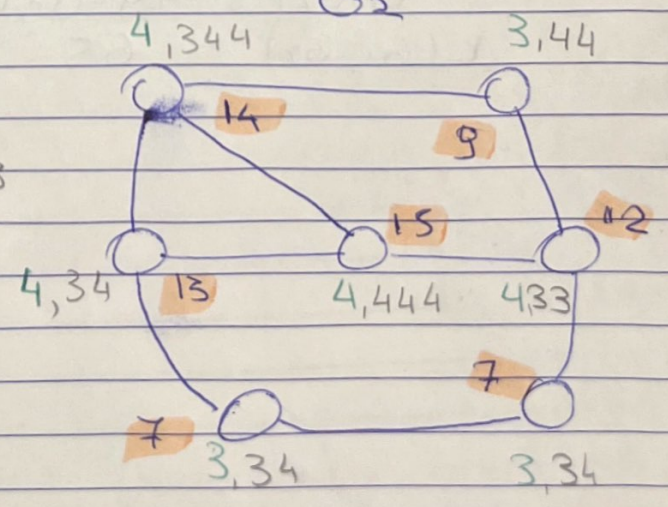 4,344 3,44
14 9
15 12
4,34 13 4,444 4,33
7 7
3,34 3,34